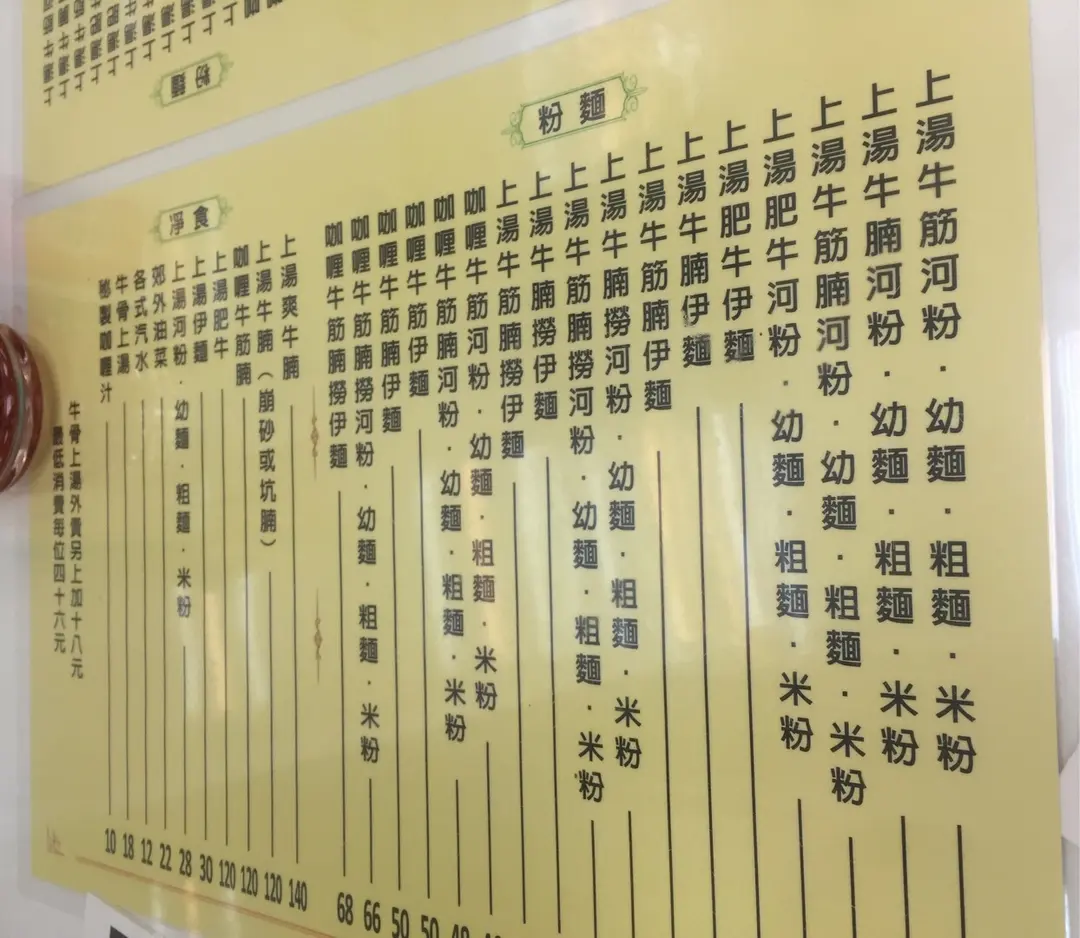 粉麵
上湯牛筋河粉．幼麵．粗麵．米粉
上湯牛腩河粉．幼麵．粗麵．米粉
上湯牛筋腩河粉．幼麵．粗麵．米粉
上湯肥牛河粉．幼麵．粗麵．米粉
上湯肥牛伊麵
上湯牛腩伊麵
上湯牛筋腩伊麵
上湯牛腩撈河粉．幼麵．粗麵．米粉
上湯牛筋腩撈河粉．幼麵．粗麵．米粉
上湯牛腩撈伊麵
上湯牛筋腩撈伊麵
咖喱牛筋河粉．幼麵．粗麵．米粉
咖喱牛筋腩河粉．幼麵．粗麵．米粉
咖喱牛腩伊麵 50
咖喱牛筋腩伊麵 50
咖喱牛筋腩撈河粉．幼麵．粗麵．米粉 66
咖喱牛筋腩撈伊麵 68
淨食
上湯爽牛腩 140
上湯牛腩（崩砂或坑腩） 120
咖喱牛筋腩 120
上湯肥牛 120
上湯伊麵 30
上湯河粉．幼麵．粗麵．米粉 28
郊外油菜 22
各式汽水 12
牛骨上湯 18
秘製咖喱汁 10
牛骨上湯外賣另上加十八元
最低消費每位四十六元
粉麵